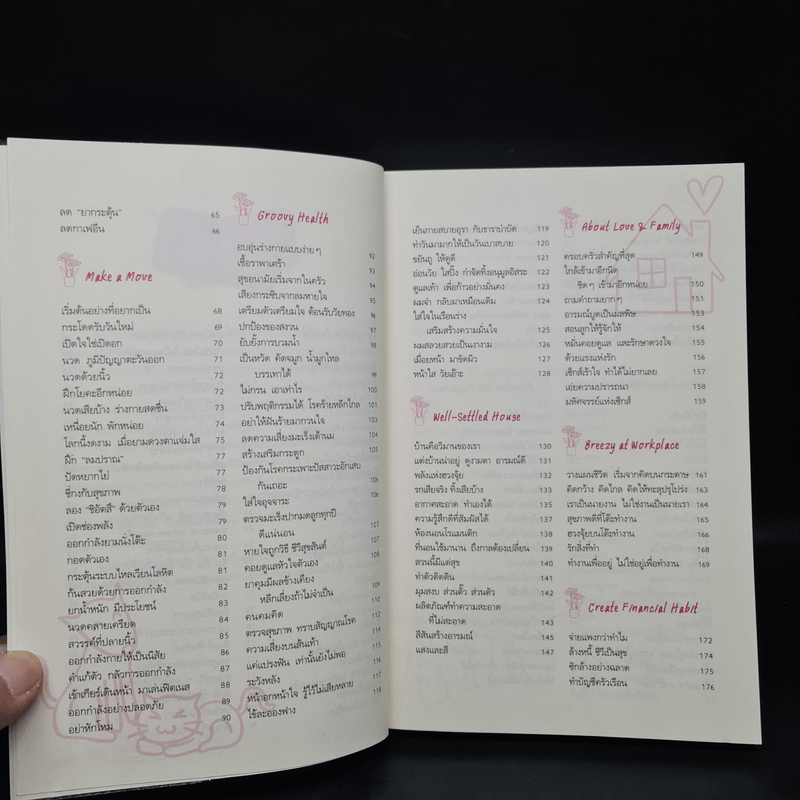 ลด "ยากระตุ้น" 65
ลดกาเฟอีน 66
Make a Move
เริ่มต้นอย่างที่อยากเป็น 68
กระโดดรับวันใหม่ 69
เปิดใจใช่เปิดอก 70
นวด ภูมิปัญญาตะวันออก 71
นวดด้วยนิ้ว 72
ฝึกโยคะอีกหน่อย 72
นวดเสียบ้าง ร่างกายสดชื่น 73
เหนื่อยนัก พักหน่อย 74
โลกนี้งดงาม เมื่อยามดวงตาแจ่มใส 75
ฝึก "ลมปราณ" 77
ปัดหยากไย่ 77
ชี่กงกับสุขภาพ 78
ลอง "ชิอัตสึ" ด้วยตัวเอง 79
เปิดช่องพลัง 79
ออกกำลังยามนั่งโต๊ะ 80
กอดตัวเอง 81
กระตุ้นระบบไหลเวียนโลหิต 81
ก้นสวยด้วยการออกกำลัง 82
ยกน้ำหนัก มีประโยชน์ 83
นวดคลายเครียด 84
สวรรค์ที่ปลายนิ้ว 85
ออกกำลังกายให้เป็นนิสัย 86
คำแก้ตัว กลัวการออกกำลัง 87
เข้าเกียร์เดินหน้า มาเล่นฟิตเนส 88
ออกกำลังอย่างปลอดภัย 89
อย่าหักโหม 90
Groovy Health
อบอุ่นร่างกายแบบง่ายๆ 92
เชื้อราพาเศร้า 93
สุขอนามัยเริ่มจากในครัว 94
เสียงกระซิบจากลมหายใจ 95
เตรียมตัวเตรียมใจ ต้อนรับวัยทอง 96
ปกป้องของสงวน 97
ยับยั้งการบวมน้ำ 98
เป็นหวัด คัดจมูก น้ำมูกไหล
บรรเทาได้ 99
ไม่กรน เอาเท่าไร 100
ปรับพฤติกรรมได้ โรคร้ายหลีกไกล 101
อย่าให้ฝันร้ายมากวนใจ 103
ลดความเสี่ยงมะเร็งเต้านม 104
สร้างเสริมกระดูก 105
ป้องกันโรคกระเพาะปัสสาวะอักเสบ
กันเถอะ 106
ใส่ใจอุจจาระ 106
ตรวจมะเร็งปากมดลูกทุกปี
ดีแน่นอน 107
หายใจถูกวิธี ชีวีสุขสันต์ 107
คอยดูแลหัวใจตัวเอง 108
ยาคุมมีผลข้างเคียง
หลีกเลี่ยงถ้าไม่จำเป็น 109
คนคมคิด 111
ตรวจสุขภาพ ทราบสัญญาณโรค 112
ความเสี่ยงบนส้นเท้า 114
แค่แปรงฟัน เท่านั้นยังไม่พอ 115
ระวังหลัง 116
หน้าอกหน้าใจ รู้ไว้ไม่เสียหลาย 117
ไข้ละอองฟาง 118
เย็นกายสบายอุรา กับธาราบำบัด 119
ทำวันมามากให้เป็นวันเบาสบาย 120
ขยันถู ให้ดูดี 121
อ่อนวัย ใสปิ๊ง กำจัดทิ้งอนุมูลอิสระ 122
ดูแลเท้า เพื่อก้าวอย่างมั่นคง 123
ผมจ๋า กลับมาเหมือนเดิม 124
ใส่ใจในเรือนร่าง
เสริมสร้างความมั่นใจ 125
ผมสลวยสวยเป็นเงางาม 126
เมื่อยหน้า มาขัดผิว 127
หน้าใส วัยเอ๊าะ 128
Well-Settled House
บ้านคือวิมานของเรา 130
แต่งบ้านน่าอยู่ ดูงามตา อารมณ์ดี 131
พลังแห่งฮวงจุ้ย 132
รกเสียจริง ทิ้งเสียบ้าง 133
อากาศสะอาด ทำเองได้ 135
ความรู้สึกดีที่สัมผัสได้ 137
ห้องนอนโรแมนติก 138
ที่นอนใช้มานาน ถึงกาลต้องเปลี่ยน 139
สวนนี้มีแต่สุข 140
ทำตัวติดดิน 141
มุมสงบ ส่วนตั๊ว ส่วนตัว 142
ผลิตภัณฑ์ทำความสะอาด
ที่ไม่สะอาด 143
สีสันสร้างอารมณ์ 145
แสงและสี 147
About Love & Family
ครอบครัวสำคัญที่สุด 149
ใกล้เข้ามาอีกนิด
ชิดๆ เข้ามาอีกหน่อย 150
ถามคำถามยากๆ 151
อารมณ์บูดเป็นมลพิษ 153
สอนลูกให้รู้จักให้ 154
หมั่นคอยดูแล และรักษาดวงใจ 155
ด้วยแรงแห่งรัก 156
เซ็กส์เร้าใจ ทำได้ไม่ยากเลย 157
เอ่ยความปรารถนา 158
มหัศจรรย์แห่งเซ็กส์ 159
Breezy at Workplace
วางแผนชีวิต เริ่มจากคิดบนกระดาษ 161
คิดกว้าง คิดไกล คิดให้ทะลุปรุโปร่ง 163
เราเป็นนายงาน ไม่ใช่งานเป็นนายเรา 164
สุขภาพดีที่โต๊ะทำงาน 165
ฮวงจุ้ยบนโต๊ะทำงาน 166
รักสิ่งที่ทำ 168
ทำงานเพื่ออยู่ ไม่ใช่อยู่เพื่อทำงาน 169
Create Financial Habit
จ่ายแพงกว่าทำไม 172
ล้างหนี้ ชีวีเป็นสุข 174
ซักล้างอย่างฉลาด 175
ทำบัญชีครัวเรือน 176